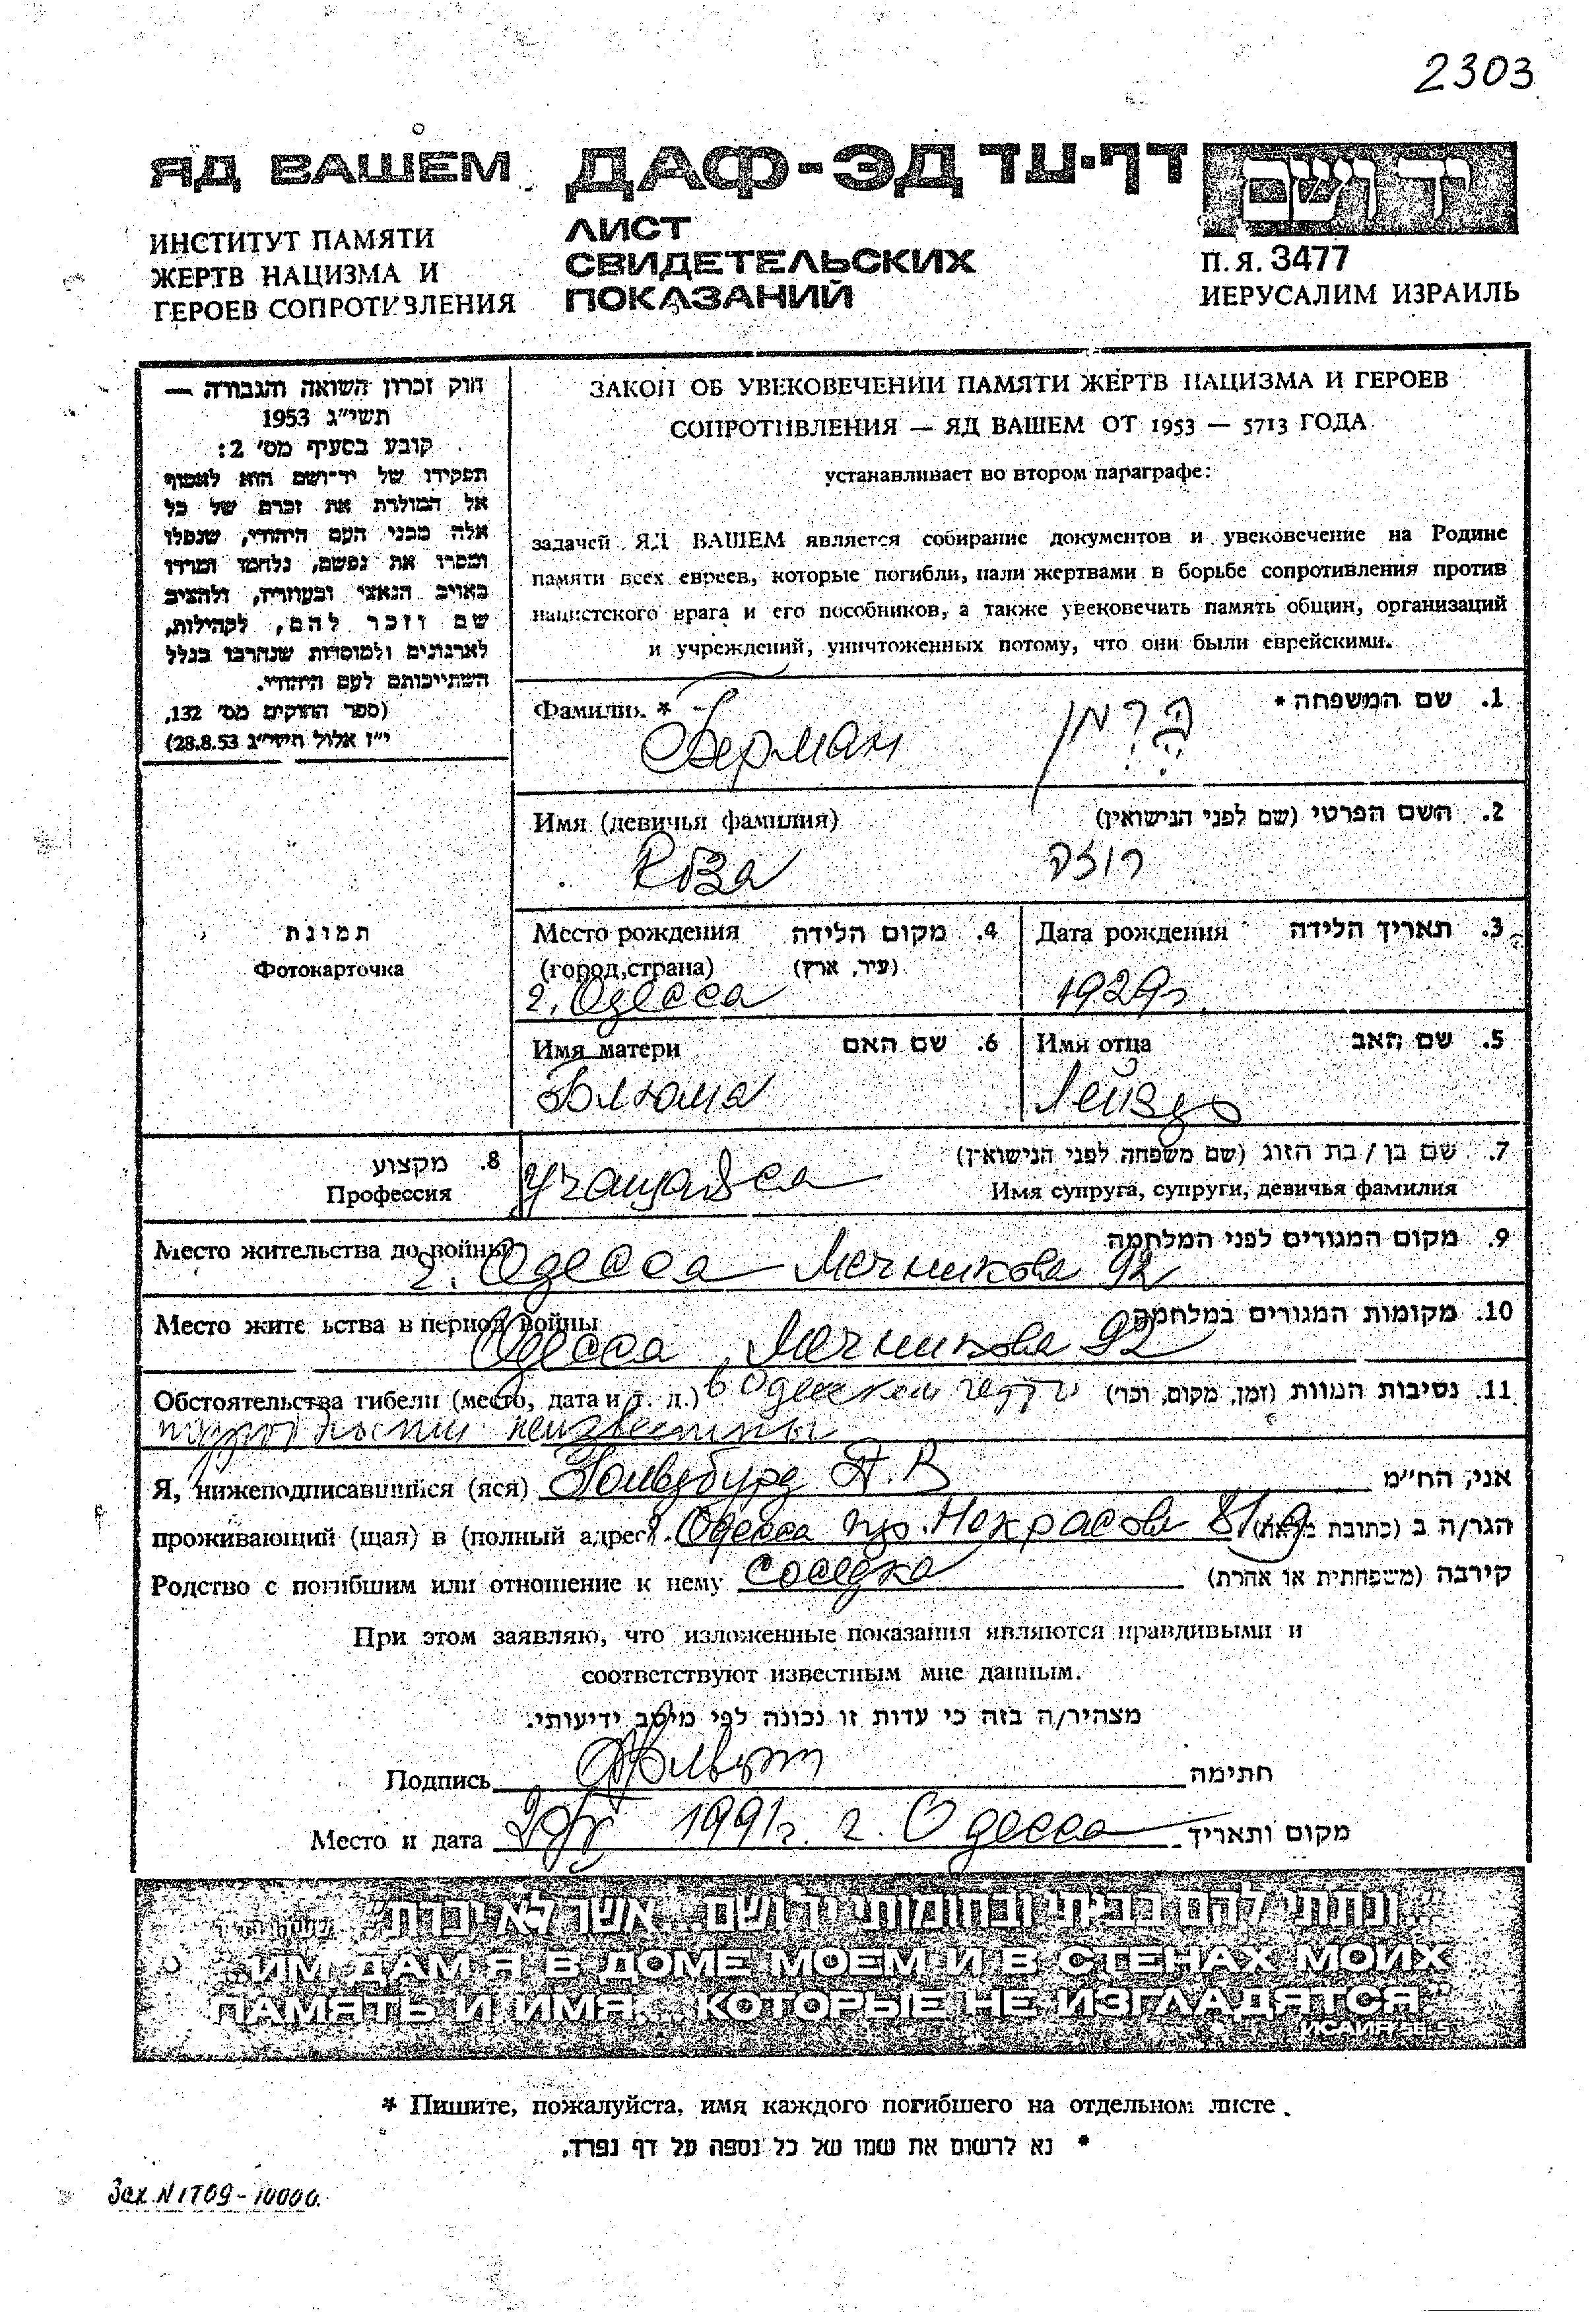 2303
ЯД ВАШЕМ
ИНСТИТУТ ПАМЯТИ
ЖЕРТВ НАЦИЗМА И
ГЕРОЕВ СОПРОТИВЛЕНИЯ
ДАФ-ЭД דף-עד
ЛИСТ
СВИДЕТЕЛЬСКИХ
ПОКАЗАНИЙ
יד ושם
П.Я. 3477
ИЕРУСАЛИМ ИЗРАИЛЬ
חוק זכרון השואה והגבורה —
תשי״ג 1953
קובע בסעיף מס׳ 2:
תפקידו של יד־ושם הוא לאסוף
אל המולדת את זכרם של כל
אלה מבני העם היהודי, שנפלו
ומסרו את נפשם, נלחמו ומרדו
באויב הנאצי ובעוזריו, ולהציב
שם וזכר להם, לקהילות,
לארגונים ולמוסדות שנחרבו בגלל
השתייכותם לעם היהודי.
(ספר החוקים מס׳ 132,
י״ז אלול תשי״ג 28.8.53)
ЗАКОН ОБ УВЕКОВЕЧЕНИИ ПАМЯТИ ЖЕРТВ НАЦИЗМА И ГЕРОЕВ
СОПРОТИВЛЕНИЯ — ЯД ВАШЕМ ОТ 1953 — 5713 ГОДА
устанавливает во втором параграфе:
задачей ЯД ВАШЕМ является собирание документов и увековечение на Родине
памяти всех евреев, которые погибли, пали жертвами в борьбе сопротивления против
нацистского врага и его пособников, а также увековечить память общин, организаций
и учреждений, уничтоженных потому, что они были еврейскими.
Фамилия * 1. שם המשפחה *
Берман
Имя (девичья фамилия) 2. השם הפרטי (שם לפני הנישואין)
Роза רוזה
תמונת
Фотокарточка
Место рождения 4. מקום הלידה
(город, страна) (עיר, ארץ)
г. Одесса
Дата рождения 3. תאריך הלידה
1929г.
Имя матери 6. שם האם
Блюма
Имя отца 5. שם האב
Лейзер
8. מקצוע
Профессия
Учащаяся
7. שם בן / בת הזוג (שם משפחה לפני הנישואין)
Имя супруга, супруги, девичья фамилия
Место жительства до войны 9. מקום המגורים לפני המלחמה
г. Одесса Мечникова 92
Место жите ьства в период войны 10. מקומות המגורים במלחמה
Одесса, Мечникова 92
Обстоятельства гибели (место, дата и т. д.) в Одесском гетто 11. נסיבות המוות (זמן, מקום, וכר׳)
подробности неизвестны
Я, нижеподписавшийся (яся) А. В אני, הח״מ
проживающий (щая) в (полный адрес) г. Одесса пр. Некрасова הגר/ה ב (כתובת מלאה)
Родство с погибшим или отношение к нему Соседка קירבה (משפחתית או אחרת)
При этом заявляю, что изложенные показания являются правдивыми и
соответствуют известным мне данным.
מצהיר/ה בזה כי עדות זו נכונה לפי מיטב ידיעותי.
Подпись חתימה
Место и дата 1991г. г. Одесса מקום ותאריך
״...ונתתי להם בביתי ובחומותי יד ושם... אשר לא יכרת״
„...ИМ ДАМ Я В ДОМЕ МОЕМ И В СТЕНАХ МОИХ
ПАМЯТЬ И ИМЯ... КОТОРЫЕ НЕ ИЗГЛАДЯТСЯ”
* Пишите, пожалуйста, имя каждого погибшего на отдельном листе.
* נא לרשום את שמו של כל נספה על דף נפרד.
Зак. N 1709-10000.